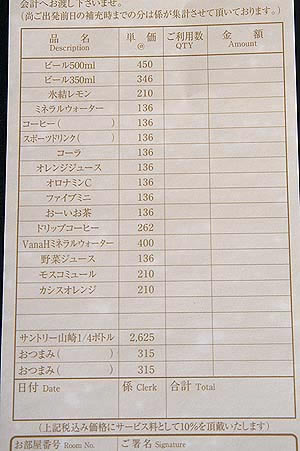 会計へお渡し下さいませ。
(尚ご出発前日の補充時までの分は係が集計させて頂いております。)
品名 単価 ご利用数 金額
Description @ QTY Amount
ビール500ml 450
ビール350ml 346
氷結レモン 210
ミネラルウォーター 136
コーヒー( ) 136
スポーツドリンク( ) 136
コーラ 136
オレンジジュース 136
オロナミンC 136
ファイブミニ 136
おーいお茶 136
ドリップコーヒー 262
VanaHミネラルウォーター 400
野菜ジュース 136
モスコミュール 210
カシスオレンジ 210
サントリー山崎1/4ボトル 2,625
おつまみ( ) 315
おつまみ( ) 315
日付 Date 係 Clerk 合計 Total
(上記税込み価格にサービス料として10%を頂戴いたします)
お部屋番号 Room No. ご署名 Signature